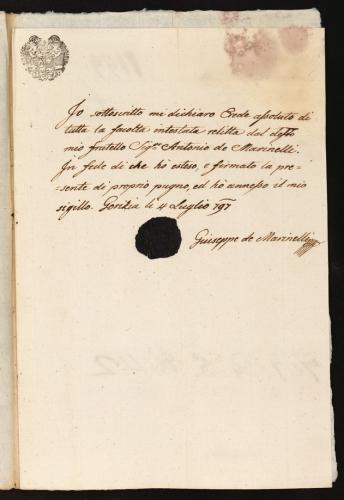 Io sottoscritto mi dichiaro Erede assoluto di
tutta la facoltà intestata relitta dal defto
mio fratello Sigr Antonio de Marinelli.
In fede di che ho esteso, e firmato la pre-
sente di proprio pugno, ed ho annesso il mio
sigillo. Gorizia li 4 Luglio 797
Guiseppe de Marinelli